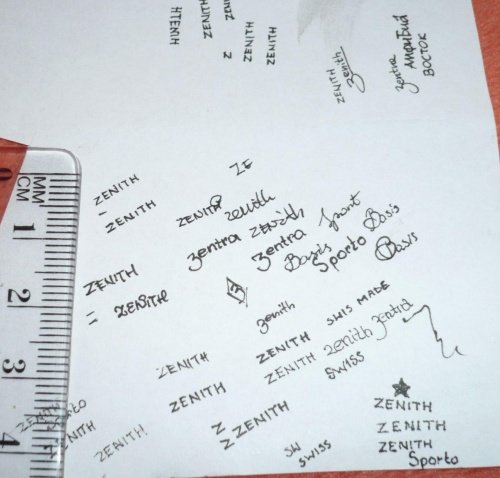 ZENITH
ZENITH
ZENITH
Z
ZENITH
ZENITH
ZENITH
zenith
zentra
АМФИБИЯ
ВОСТОК
MM
CM
0
1
2
3
4
ZE
ZENITH
ZENITH
ZENITH zenith
zentra zenith Sport Basis
zentra Basis Sporto Basis
ZENITH
ZENITH
zenith
SWIS MADE
ZENITH ZENITH zenith zentra
ZENITH SWISS
ZENITH
ZENITH
Z
Z ZENITH
ZENITH
ZENITH
SW
SWISS
ZENITH
ZENITH
ZENITH
Sporto